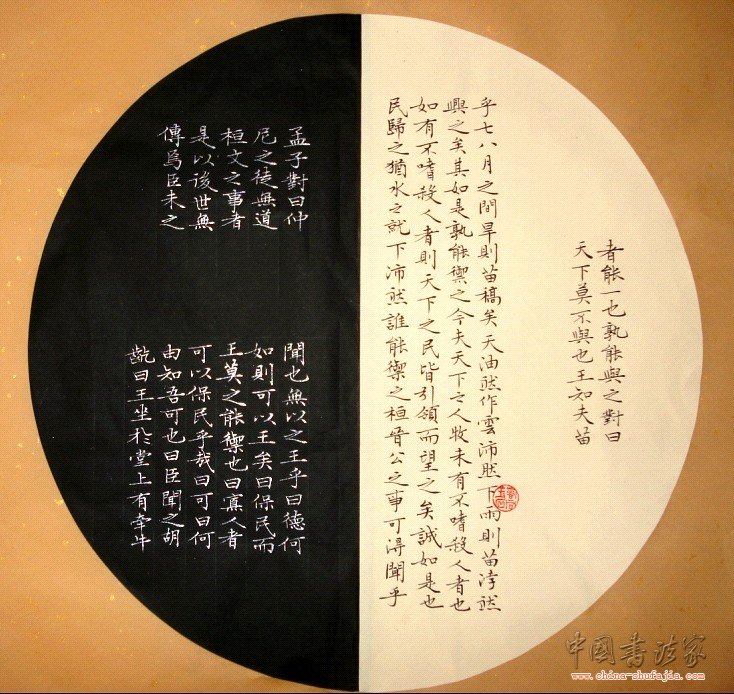 者能一也孰能與之對曰
天下莫不與也王知夫苗
乎七八月之間旱則苗槁矣天油然作雲沛然下雨則苗浡然
興之矣其如是孰能禦之今夫天下之人牧未有不嗜殺人者也
如有不嗜殺人者則天下之民皆引領而望之矣誠如是也
民歸之猶水之就下沛然誰能禦之桓晉公之事可得聞乎
孟子對曰仲
尼之徒無道
桓文之事者
是以後世無
傳焉臣未之
聞也無以之王乎曰德何
如則可以王矣曰保民而
王莫之能禦也曰寡人者
可以保民乎哉曰可曰何
由知吾可也曰臣聞之胡
齕曰王坐於堂上有牽牛
中國書法家
www.china-shufajia.com